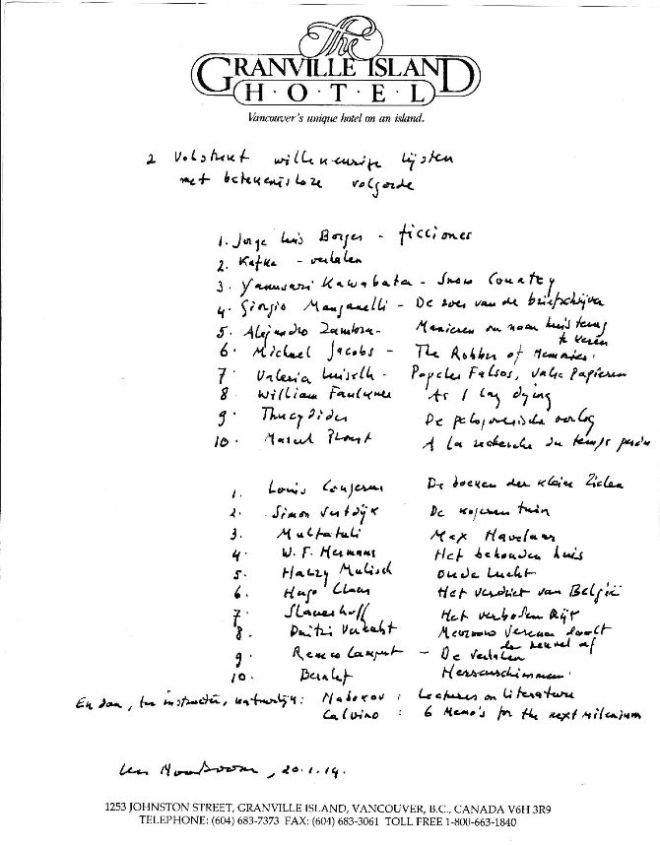 The
GRANVILLE ISLAND
H·O·T·E·L
Vancouver's unique hotel on an island.
2 Volstrekt willekeurige lijsten
met betekenisloze volgorde
1. Jorge Luis Borges - ficciones
2. Kafka - verhalen
3. Yasunari Kawabata - Snow Country
4. Giorgio Manganelli - De does van de briefschrijver
5. Alejandro Zambra - Manieren om naar huis terug
te keren
6. Michael Jacobs - The Robber of Memories.
7. Valeria Luiselli - Papeles Falsos, valse papieren
8 William Faulkner As I lay dying
9. Thucydides De peloponesische oorlog
10. Marcel Proust A la recherche du temps perdu
1. Louis Couperus De boeken der kleine Zielen
2. Simon Vestdijk De koperen tuin
3. Multatuli Max Havelaar
4. W. F. Hermans Het behouden huis
5. Harry Mulisch oude lucht
6. Hugo Claus Het verdriet van België
7. Slauerhoff Het verboden Rijk
8. Dmitri Verhulst Mevrouw Verona daalt
de heuvel af
9. Remco Campert - De verhalen
10. Bernlef Hersenschimmen.
En dan, ter instructie, natuurlijk: Nabokov : Lectures on Literature
Calvino : 6 Memo's for the next milenium
20.1.14.
1253 JOHNSTON STREET, GRANVILLE ISLAND, VANCOUVER, B.C., CANADA V6H 3R9
TELEPHONE: (604) 683-7373 FAX: (604) 683-3061 TOLL FREE 1-800-663-1840